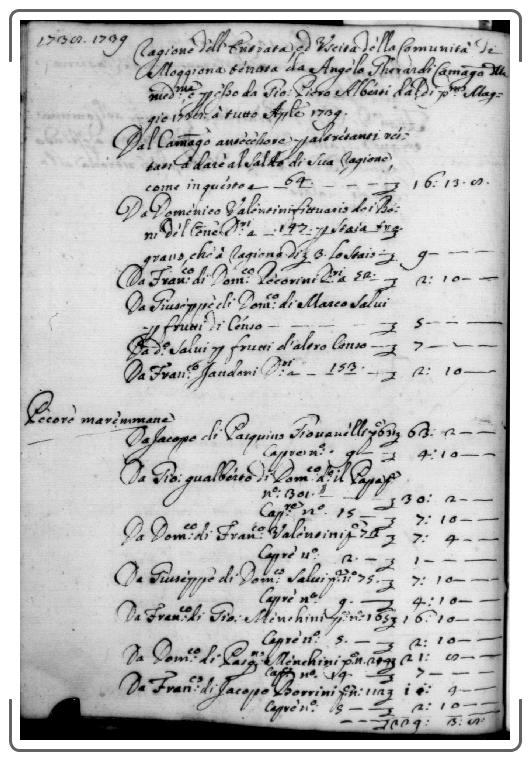 1738. 1739
Ragione dell'Entrata, ed Vscita della Comunità de
Moggiona tenuta da Angelo Gherardi Camo
e p esso da Gio: Piero Alberti dal dì pmo Mag-
gio 1738: à tutto Aple 1739.
Dal Camo antecessore p altretanti res-
tati à dare al Saldo di Sua Ragione
come in questo a 64 16: 13. 8.
Da Domenico Valentini fittuario dei Be-
ni del Cone Dri a 147: p staia
grano, che à Ragione di 3 lo Staio 9
Da Franco: di Domco: Pecorini Dri a 52. 2: 10
Da Giuseppe di Domco: di Marco Salvi
p frutti di Censo 5
Da do Salvi p frutti d'altro Censo 7
Da Franco: Dri a 153 2: 10
Pecore maremmane
Da Jacopo di Pasquino 63: 2
Capre no: 9 4: 10
Da Gio: Gualberto di Domco:
no: 301. 30: 2
Capre no. 15 7: 10
Da Domco: di Franco: Valentini 7: 4
Capre no: 2. 1
Da Giuseppe di Domco: Salvi p no 75. 7: 10
Capre no: 9 4: 10
Da Franco: di Gio: Menchini p no: 165 16: 10
Capre no. 5. 2: 10
Da Domco: di Pasqno Menchini p n. 21: 8
Cap no: 14 7
Da Franco: di Jacopo Borrini p n: 112 11: 4
Capre no: 5 2: 10
3: 8: